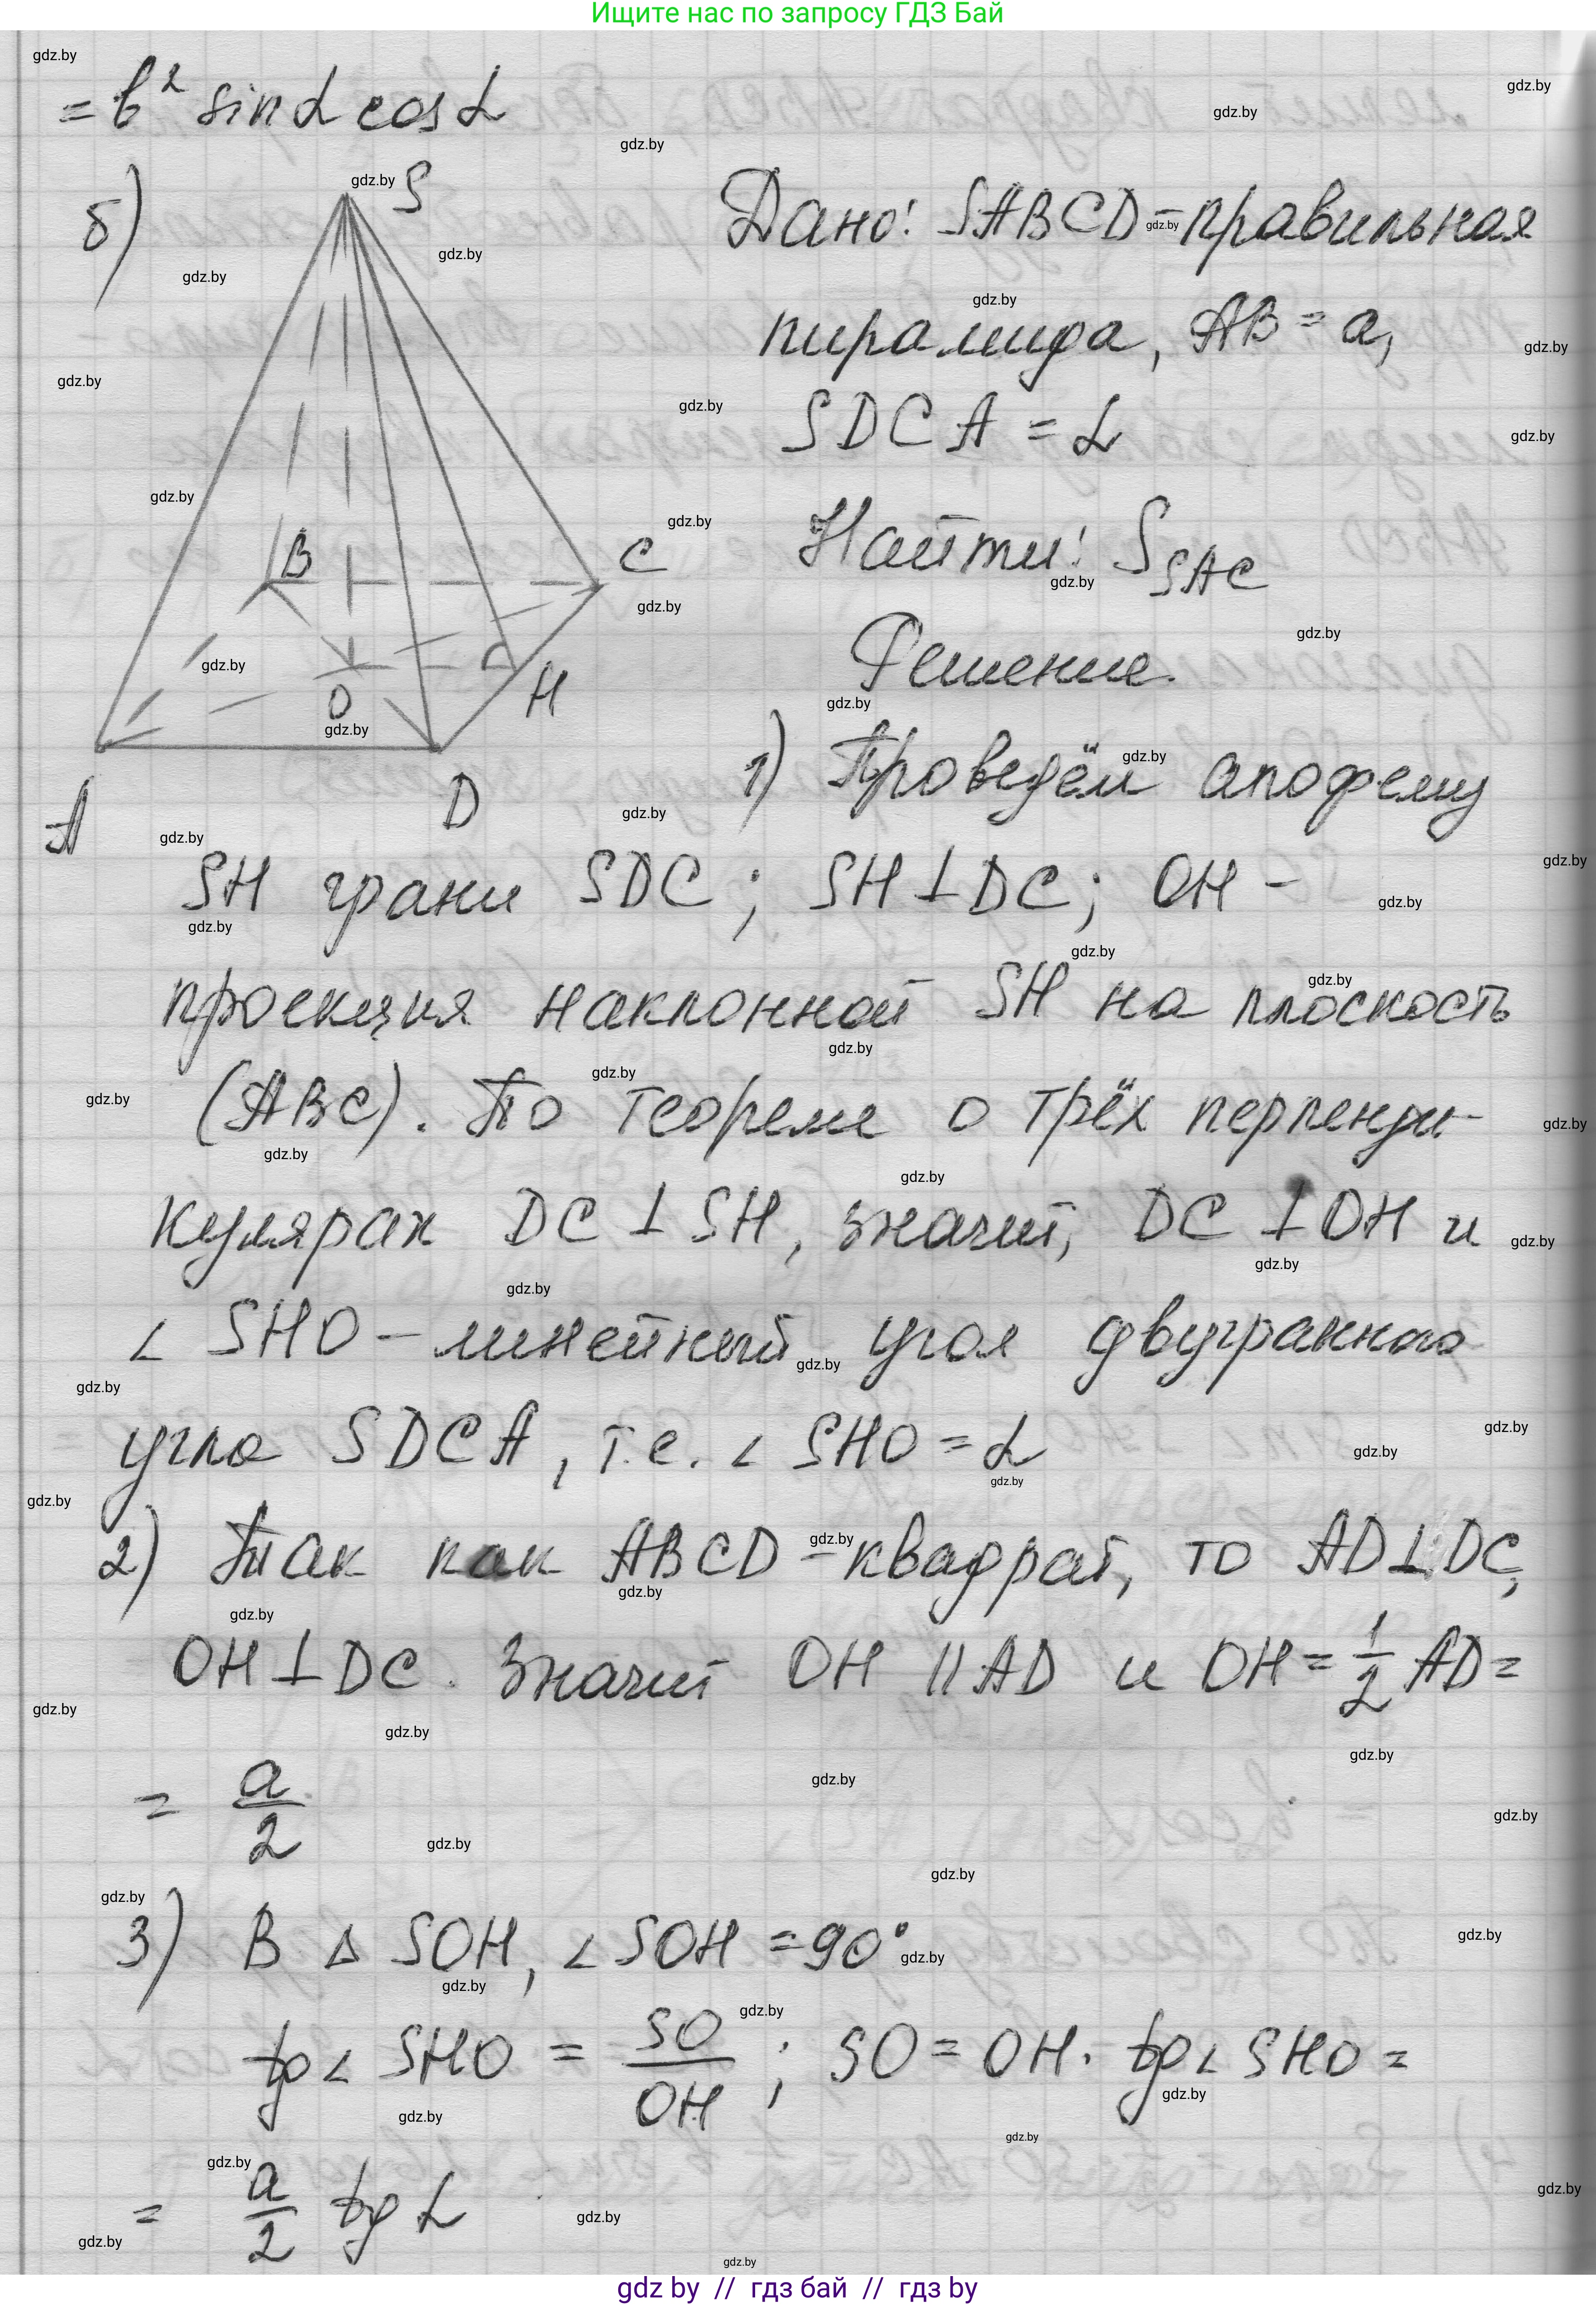 Ищите нас по запросу ГДЗ Бай
= b² sin α cos α
б)
S
B
C
O
H
A
D
Дано: SABCD - правильная
пирамида, AB = a,
SDCA = α
Найти: S_SAC
Решение.
1) Проведём апофему
SH грани SDC; SH ⊥ DC; OH -
проекция наклонной SH на плоскость
(ABC). По теореме о трёх перпенди-
кулярах DC ⊥ SH, значит, DC ⊥ OH и
∠ SHO - линейный угол двугранного
угла SDCA, т.е. ∠ SHO = α
2) Так как ABCD - квадрат, то AD ⊥ DC,
OH ⊥ DC. Значит OH || AD и OH = 1/2 AD =
= a/2
3) В Δ SOH, ∠ SOH = 90°
tg ∠ SHO = SO/OH ; SO = OH · tg ∠ SHO =
= a/2 tg α
gdz by // гдз бай // гдз by